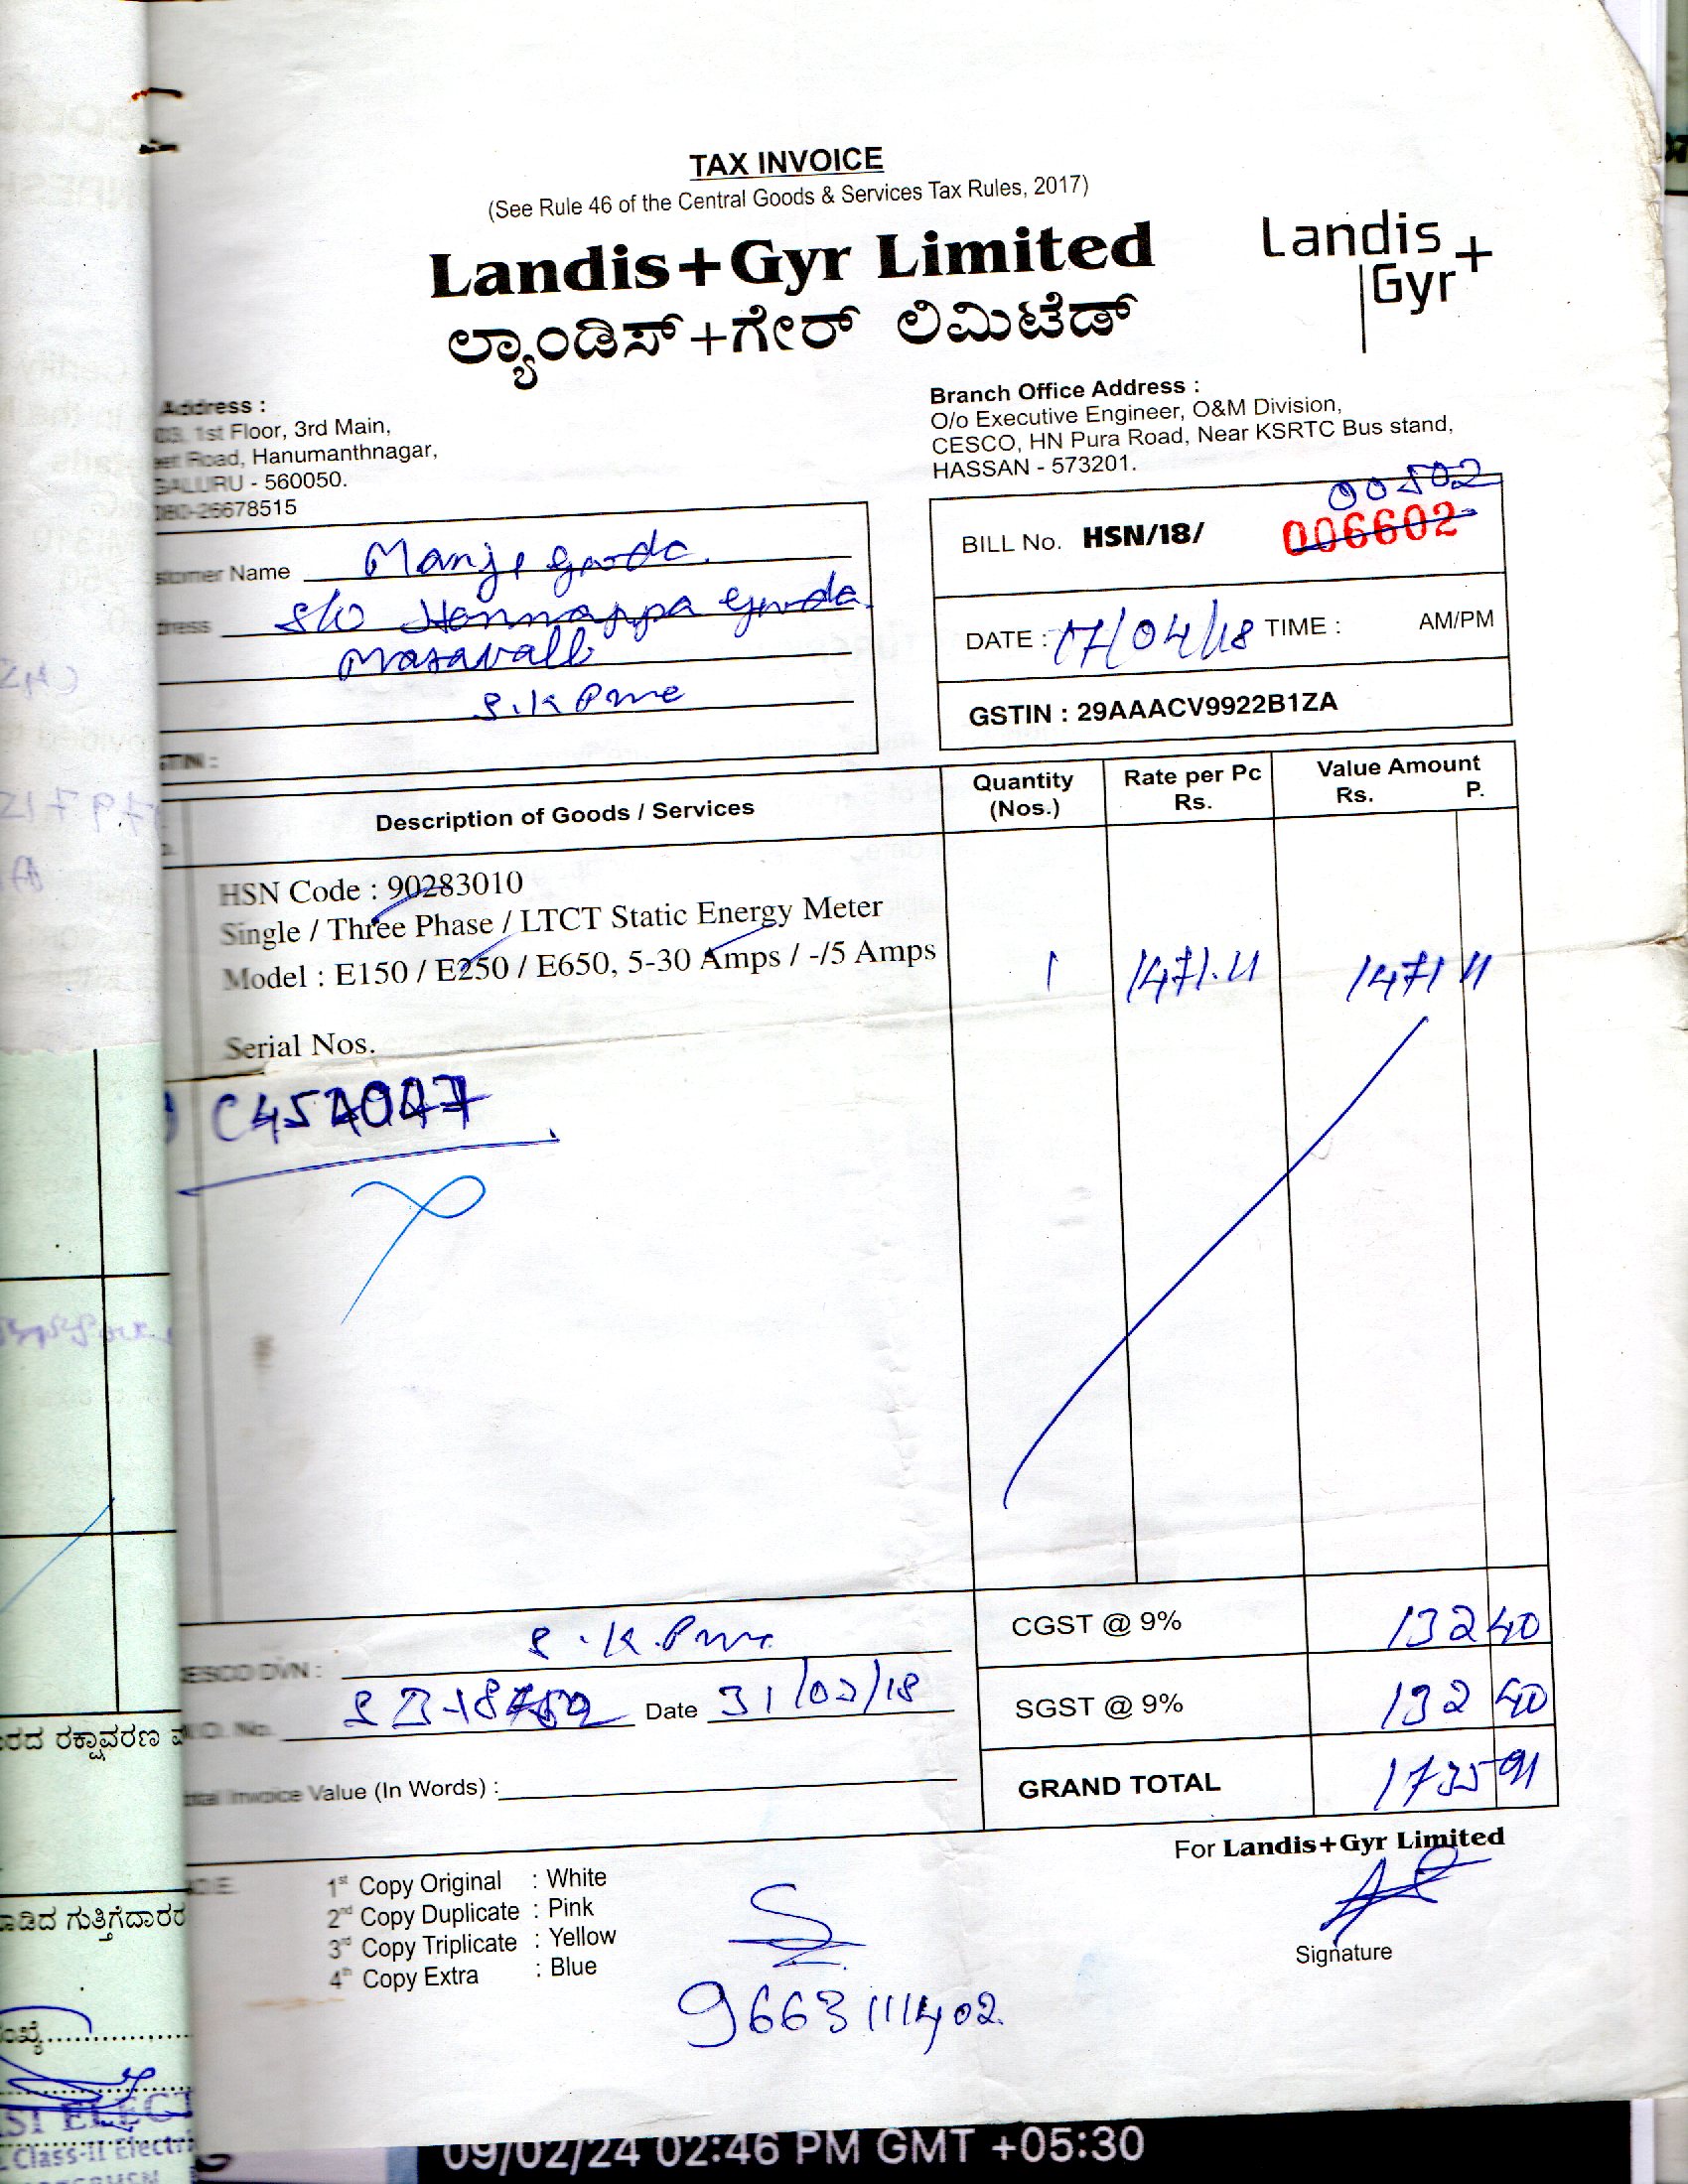 TAX INVOICE
(See Rule 46 of the Central Goods & Services Tax Rules, 2017)
Landis+Gyr Limited
ಲ್ಯಾಂಡಿಸ್+ಗೇರ್ ಲಿಮಿಟೆಡ್
Landis
Gyr+
Address :
1st Floor, 3rd Main,
Road, Hanumanthnagar,
- 560050.
080-26678515
Branch Office Address :
O/o Executive Engineer, O&M Division,
CESCO, HN Pura Road, Near KSRTC Bus stand,
HASSAN - 573201.
00502
BILL No. HSN/18/ 006602
DATE : 17/04/18 TIME : AM/PM
GSTIN : 29AAACV9922B1ZA
stomer Name Manje gowda.
dress S/o Honnappa gowda
Masavalli
TIN :
Description of Goods / Services
Quantity (Nos.)
Rate per Pc Rs.
Value Amount
Rs. P.
HSN Code : 90283010
Single / Three Phase / LTCT Static Energy Meter
Model : E150 / E250 / E650, 5-30 Amps / -/5 Amps
1 1471.11 1471 11
Serial Nos.
CGST @ 9% 132 40
SGST @ 9% 132 40
GRAND TOTAL 1735 91
ESCO DVN :
Date 31/03/18
Invoice Value (In Words) :
For Landis+Gyr Limited
Signature
1st Copy Original : White
2nd Copy Duplicate : Pink
3rd Copy Triplicate : Yellow
4th Copy Extra : Blue
9663111402
ರದ ರಕ್ಷಾವರಣ
ಾಡಿದ ಗುತ್ತಿಗೆದಾರರ
ELECT
Class-II Electri
09/02/24 02:46 PM GMT +05:30